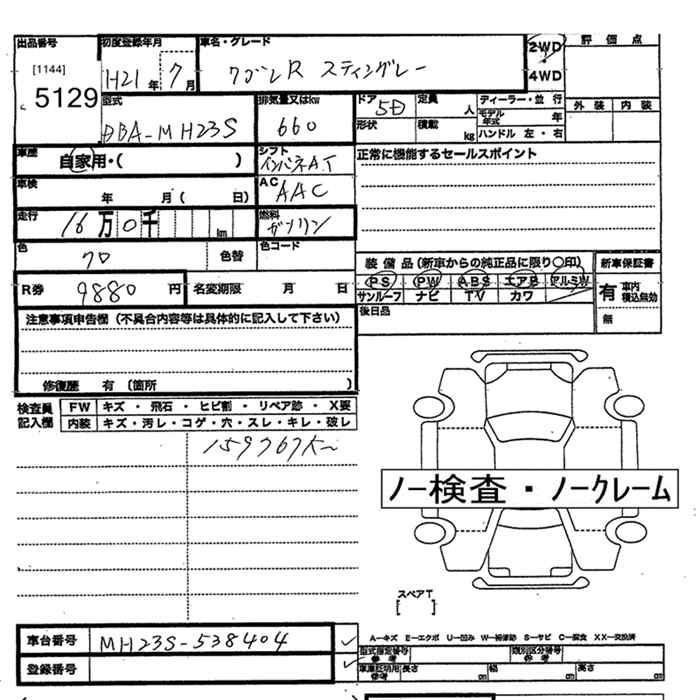 出品番号 初度登録年月 車名・グレード 2WD 評価点
[1144] H21年 7月 ワゴンR スティングレー 4WD
5129
型式 排気量又はkw ドア 5D 定員 人 ディーラー・並行 外装 内装
DBA-MH23S 660 形状 積載 kg モデル年式 年
ハンドル 左・右
車歴 自家用・( ) シフト インパネAT 正常に機能するセールスポイント
車検 年 月( 日) AC AAC
走行 16万0千 km 燃料 ガソリン
色 クロ 色替 色コード
装備品(新車からの純正品に限り○印) 新車保証書
R券 9880円 名変期限 月 日 PS PW ABS エアB アルミW 有 車内積込無効
サンルーフ ナビ TV カワ
注意事項申告欄(不具合内容等は具体的に記入して下さい) 後日品 無
修復歴 有 〔箇所 〕
検査員記入欄 FW キズ・飛石・ヒビ割・リペア跡・X要
内装 キズ・汚レ・コゲ・穴・スレ・キレ・破レ
159767K
ノー検査・ノークレーム
スペアT
[ ]
車台番号 MH23S-538404 A-キズ E-エクボ U-凹み W-補修跡 S-サビ C-腐食 XX-交換済
型式指定番号 参考 類別区分番号 参考
登録番号 車庫証明用 参考 長さ cm 幅 cm 高さ cm